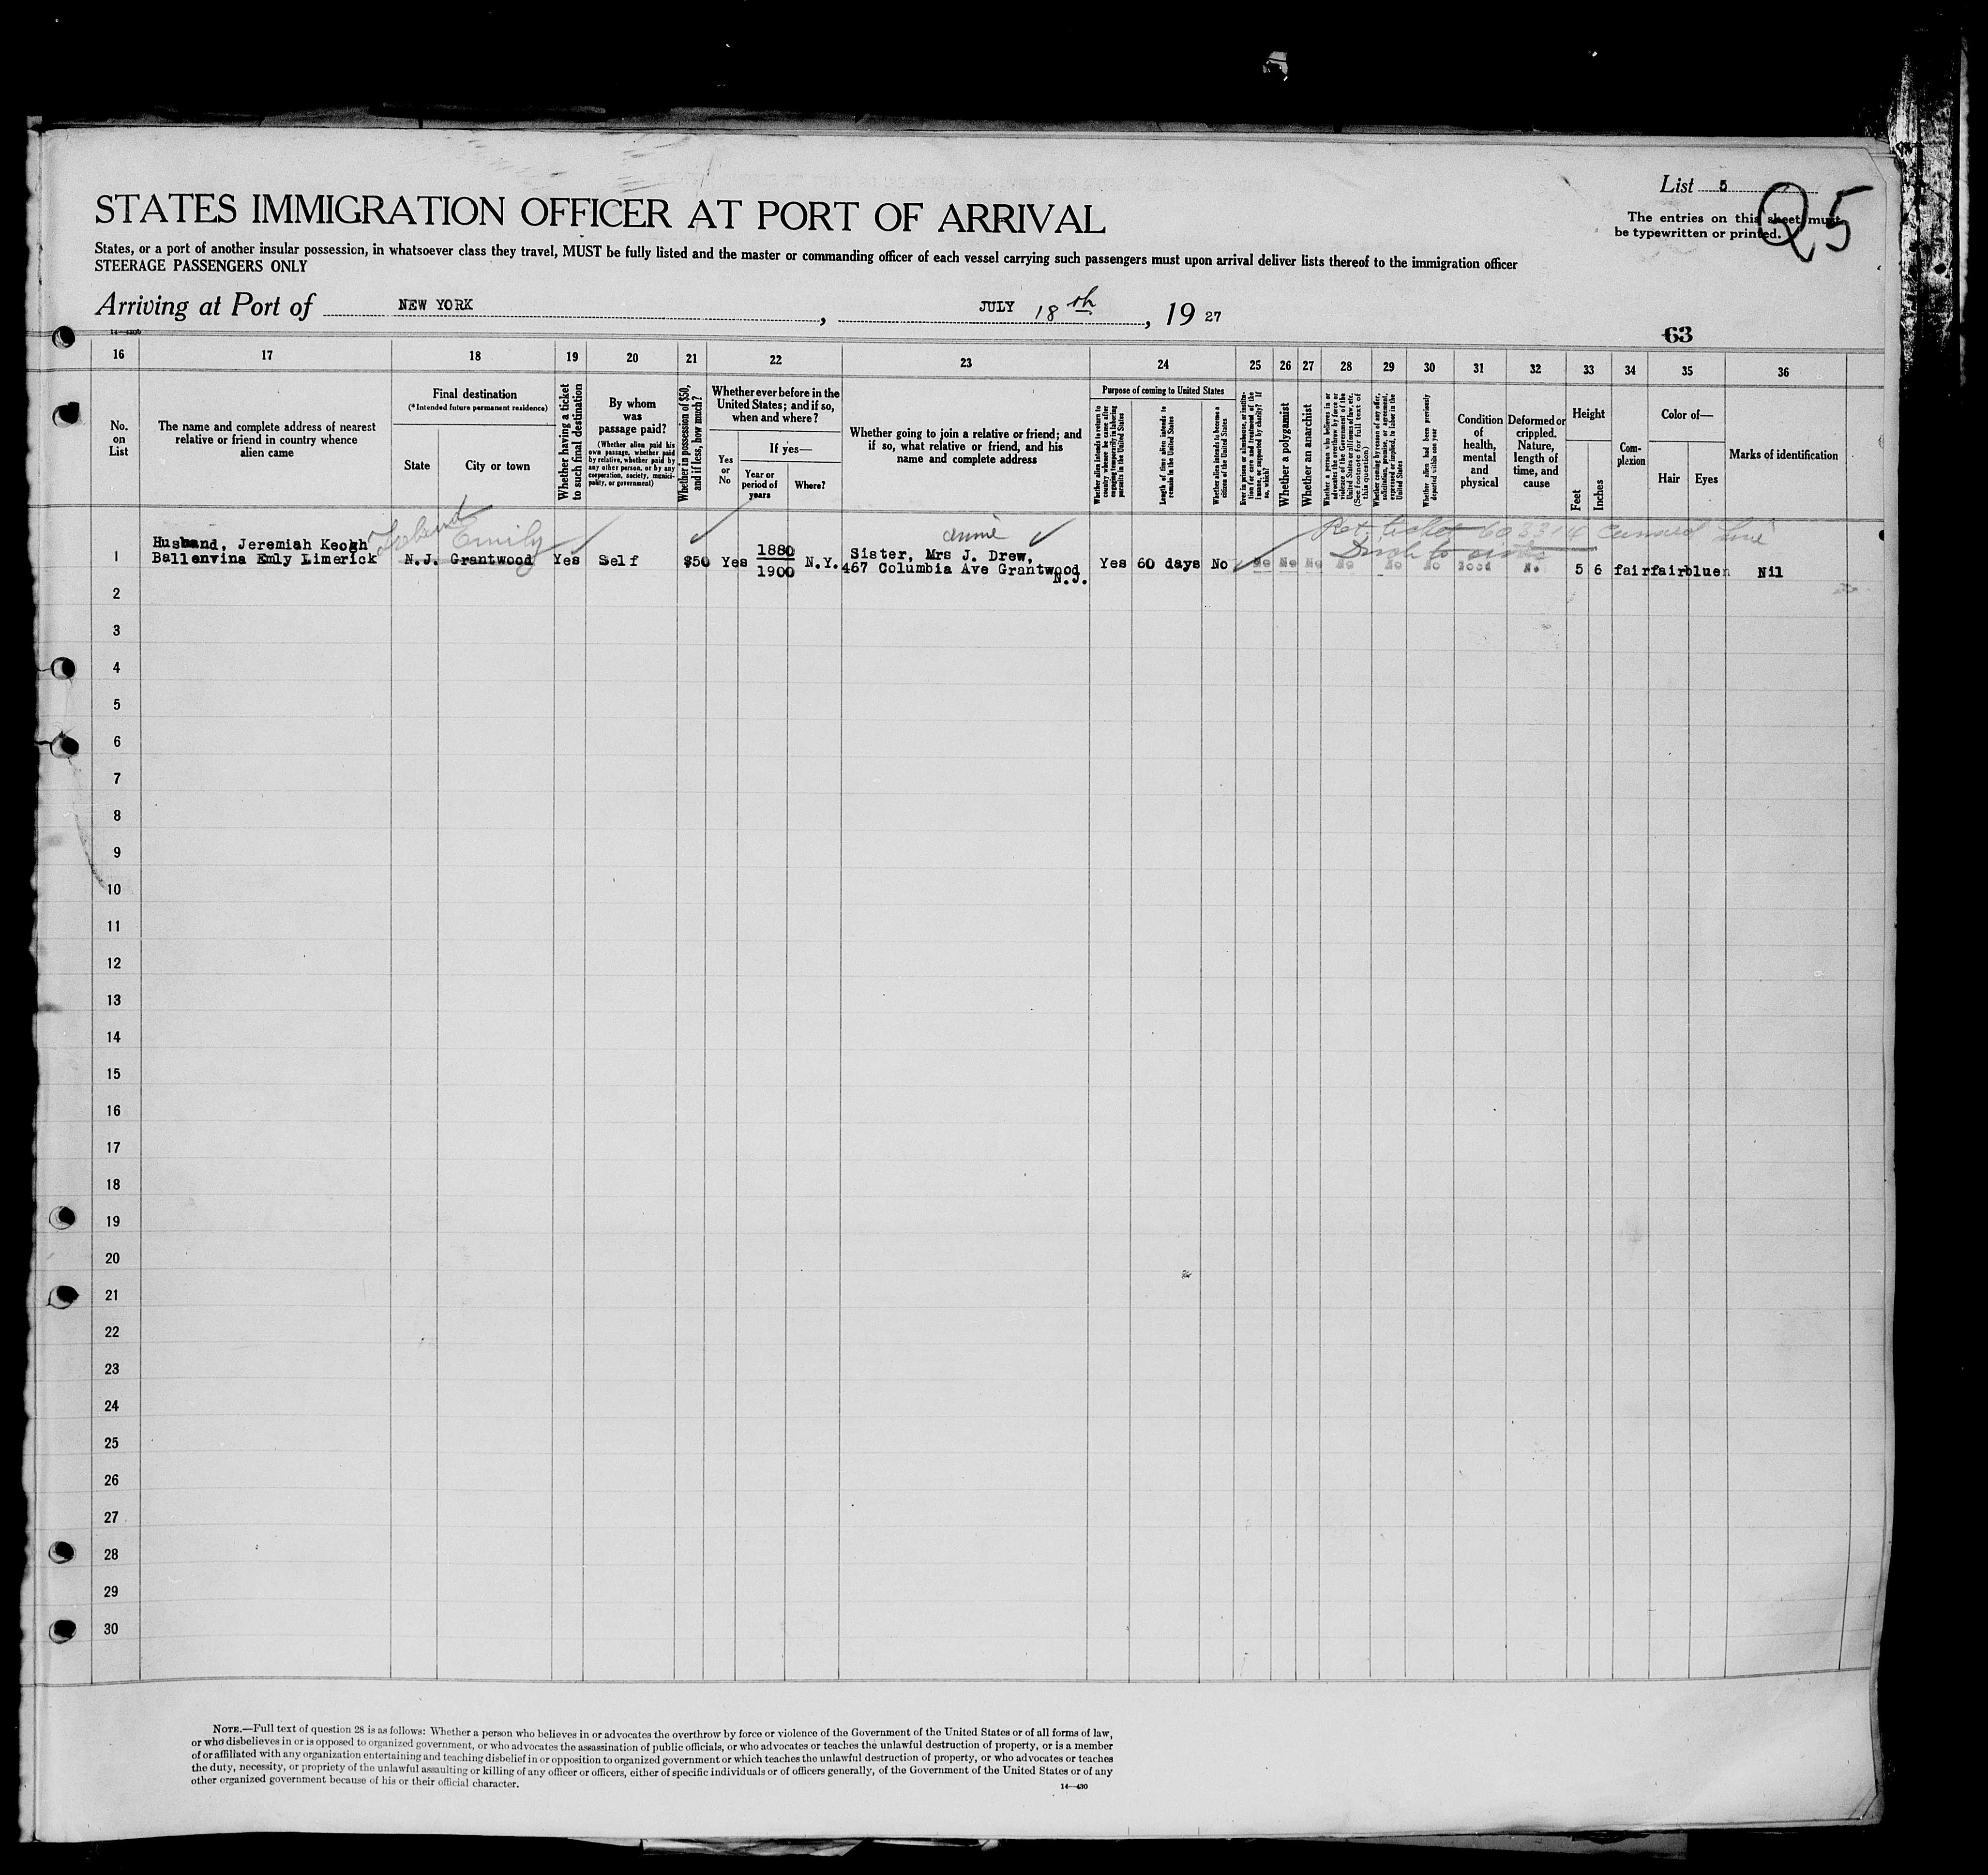 List 5
Q5
The entries on this sheet must
be typewritten or printed.
STATES IMMIGRATION OFFICER AT PORT OF ARRIVAL
States, or a port of another insular possession, in whatsoever class they travel, MUST be fully listed and the master or commanding officer of each vessel carrying such passengers must upon arrival deliver lists thereof to the immigration officer
STEERAGE PASSENGERS ONLY
Arriving at Port of NEW YORK, JULY 18th, 19 27
14—430b
63
16 17 18 19 20 21 22 23 24 25 26 27 28 29 30 31 32 33 34 35 36
No.
on
List
The name and complete address of nearest
relative or friend in country whence
alien came
Final destination
(*Intended future permanent residence)
State
City or town
Whether having a ticket
to such final destination
By whom
was
passage paid?
(Whether alien paid his
own passage, whether paid
by relative, whether paid by
any other person, or by any
corporation, society, munici-
pality, or government)
Whether in possession of $50,
and if less, how much?
Whether ever before in the
United States; and if so,
when and where?
Yes
or
No
If yes—
Year or
period of
years
Where?
Whether going to join a relative or friend; and
if so, what relative or friend, and his
name and complete address
Purpose of coming to United States
Whether alien intends to return to
country whence he came after
engaging temporarily in laboring
pursuits in the United States
Length of time alien intends to
remain in the United States
Whether alien intends to become a
citizen of the United States
Ever in prison or almshouse, or institu-
tion for care and treatment of the
insane, or supported by charity? If
so, which?
Whether a polygamist
Whether an anarchist
Whether a person who believes in or
advocates the overthrow by force or
violence of the Government of the
United States or all forms of law, etc.
(See footnote for full text of
this question)
Whether coming by reason of any offer,
solicitation, promise, or agreement,
expressed or implied, to labor in the
United States
Whether alien had been previously
deported within one year
Condition
of
health,
mental
and
physical
Deformed or
crippled.
Nature,
length of
time, and
cause
Height
Feet
Inches
Com-
plexion
Color of—
Hair
Eyes
Marks of identification
Ireland Emily
Annie
Ret. ticket
1
Husband, Jeremiah Keogh
Ballenvina Emly Limerick
N.J. Grantwood Yes Self $50 Yes
1880
1900
N.Y.
Sister, Mrs J. Drew,
467 Columbia Ave Grantwood
N.J.
Yes 60 days No No No No No No No Good No 5 6 fair fair bluen Nil
2
3
4
5
6
7
8
9
10
11
12
13
14
15
16
17
18
19
20
21
22
23
24
25
26
27
28
29
30
NOTE.—Full text of question 28 is as follows: Whether a person who believes in or advocates the overthrow by force or violence of the Government of the United States or of all forms of law,
or who disbelieves in or is opposed to organized government, or who advocates the assassination of public officials, or who advocates or teaches the unlawful destruction of property, or is a member
of or affiliated with any organization entertaining and teaching disbelief in or opposition to organized government or which teaches the unlawful destruction of property, or who advocates or teaches
the duty, necessity, or propriety of the unlawful assaulting or killing of any officer or officers, either of specific individuals or of officers generally, of the Government of the United States or of any
other organized government because of his or their official character.
14—430